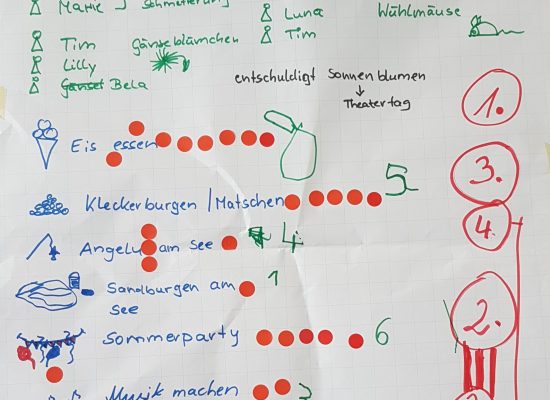 Marie } Schmetterling
Luna
Wühlmäuse
Tim
Tim gänseblümchen
Lilly
Bela
entschuldigt Sonnenblumen
↓
Theatertag
1.
Eis essen
3.
Kleckerburgen / Matschen 5
4.
Angeln am See 4
Sandburgen am 1
See
2.
Sommerparty 6
Musik machen